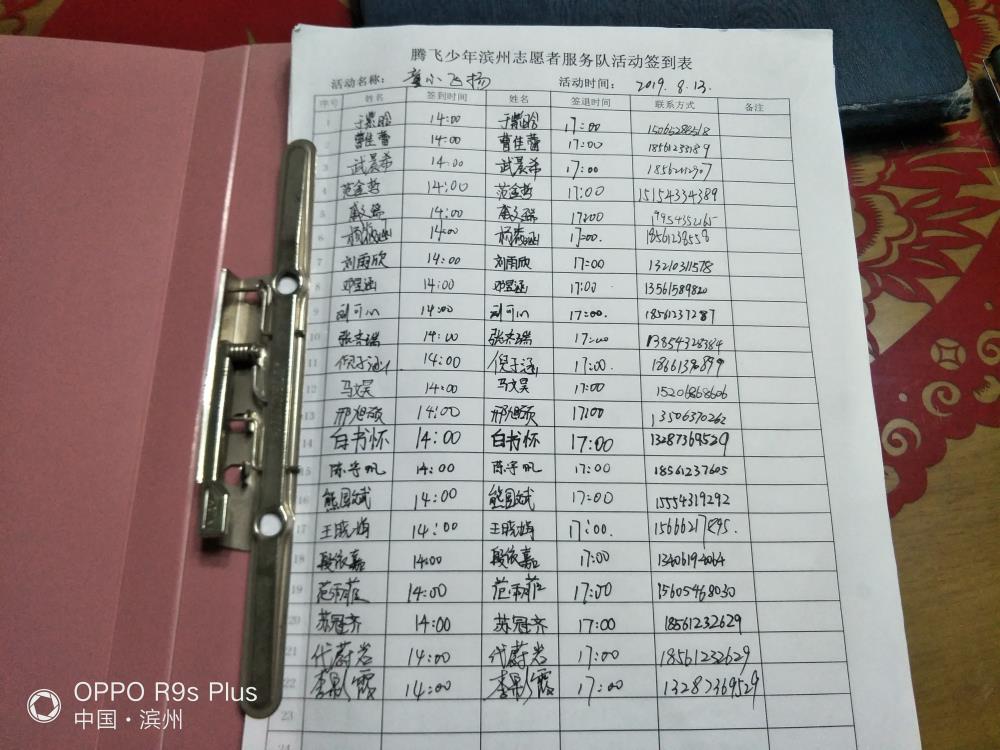 腾飞少年滨州志愿者服务队活动签到表
活动名称： 童小飞扬 活动时间： 2019.8.13.
序号 姓名 签到时间 姓名 签退时间 联系方式 备注
1 14:00 17:00
2 曹佳蕾 14:00 曹佳蕾 17:00
3 武晨希 14:00 武晨希 17:00
4 范金哲 14:00 范金哲 17:00 15154334389
5 14:00 17:00
6 14:00 17:00. 18561238558
7 刘雨欣 14:00 刘雨欣 17:00 13210311578
8 14:00 17:00 13561589820
9 刘可心 14:00 刘可心 17:00. 18561237287
10 14:00 17:00 13854328384
11 倪子涵 14:00 倪子涵 17:00.
12 马文昊 14:00 马文昊 17:00 15206868606
13 邢旭硕 14:00 邢旭硕 17:00 13506370262
14 白书怀 14:00 白书怀 17:00 13287369529
15 陈子帆 14:00 陈子帆 17:00 18561237605
16 熊国斌 14:00 熊国斌 17:00 15554319292
17 王晓梅 14:00 王晓梅 17:00.
18 段依嘉 14:00 段依嘉 17:00 13406194064
19 范雨菲 14:00 范雨菲 17:00 15605468030
20 苏冠齐 14:00 苏冠齐 17:00 18561232629
21 代蔚岩 14:00 代蔚岩 17:00 18561232629
22 李影霞 14:00 李影霞 17:00 13287369529
23
24
OPPO R9s Plus
中国·滨州